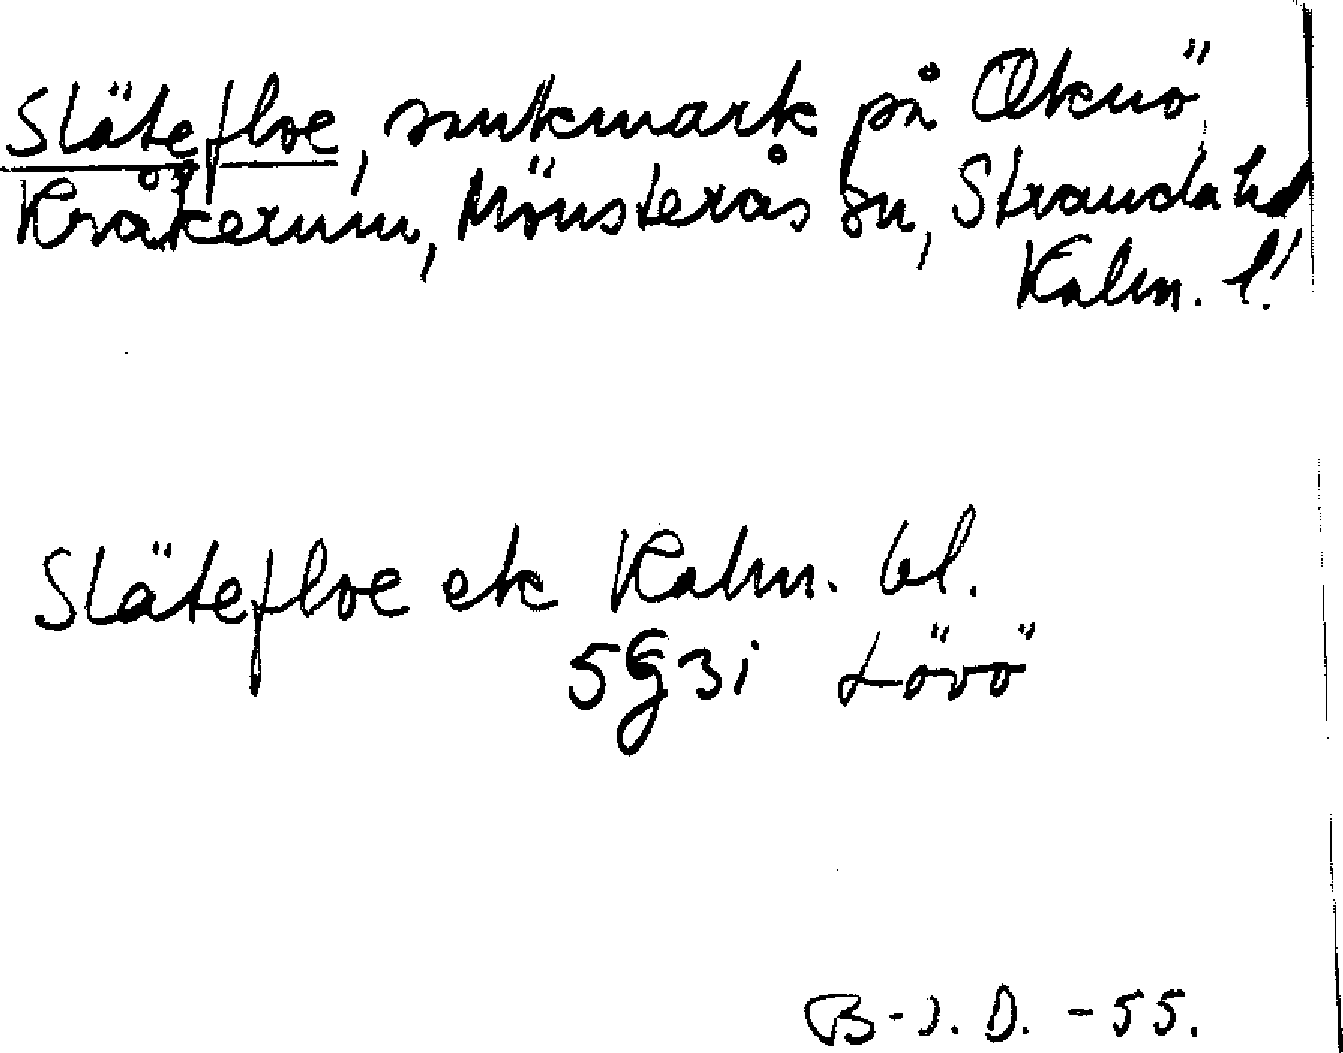 Slätefloe, sankmark på Oknö,
Kråkerum, Mönsterås sn, Stranda hd
Kalm. l.
Slätefloe ek Kalm. bl.
5G3i Lövö
B-J. D. -55.